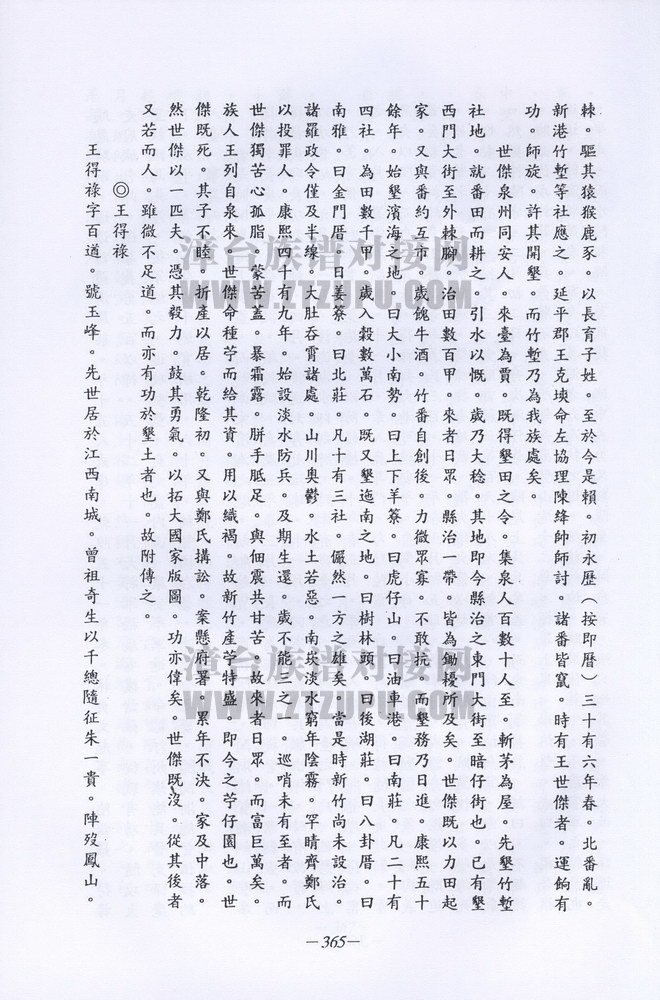 棘。驅其猿猴鹿豕。以長育子姓。至於今是賴。初永歷（按即曆）三十有六年春。北番亂。
新港竹塹等社應之。延平郡王克塽命左協理陳絳帥師討。諸番皆竄。時有王世傑者。運餉有
功。師旋。許其開墾。而竹塹乃為我族處矣。
世傑泉州同安人。來臺為賈。既得墾田之令。集泉人百數十人至。斬茅為屋。先墾竹塹
社地。就番田而耕之。引水以慨。歲乃大稔。其地即今縣治之東門大街至暗仔街也。已有墾
西門大街至外棘腳。治田數百甲。來者日眾。縣治一帶。皆為鋤擾所及矣。世傑既以力田起
家。又與番約互市。歲餽牛酒。竹番自創後。力微眾寡。不敢抗。而墾務乃日進。康熙五十
餘年。始墾濱海之地。曰大小南勢。曰上下羊寮。曰虎仔山。曰油車港。曰南莊。凡二十有
四社。為田數千甲。歲入穀數萬石。既又墾迤南之地。曰樹林頭。曰後湖莊。曰八卦厝。曰
南雅。曰金門厝。曰姜寮。曰北莊。凡十有三社。儼然一方之雄矣。當是時新竹尚未設治。
諸羅政令僅及半線。大肚吞霄諸處。山川奧鬱。水土若惡。南崁淡水窮年陰霧。罕晴齊鄭氏
以投罪人。康熙四十有九年。始設淡水防兵。及期生還。歲不能三之一。巡哨未有至者。而
世傑獨苦心孤脂。蒙苦蓋。暴霜露。胼手胝足。與佃震共甘苦。故來者日眾。而富巨萬矣。
族人王列自泉來。世傑命種苧而給其資。用以織褐。故新竹產苧特盛。即今之苧仔園也。世
傑既死。其子不睦。折產以居。乾隆初。又與鄭氏搆訟。案懸府署。累年不決。家及中落。
然世傑以一匹夫。憑其毅力。鼓其勇氣。以拓大國家版圖。功亦偉矣。世傑既沒。從其後者
又若而人。雖微不足道。而亦有功於墾土者也。故附傳之。
◎王得祿
王得祿字百道。號玉峰。先世居於江西南城。曾祖奇生以千總隨征朱一貴。陣歿鳳山。
—365—
漳台族谱对接网
WWW.ZTZUPU.COM
漳台族谱对接网
WWW.ZTZUPU.COM